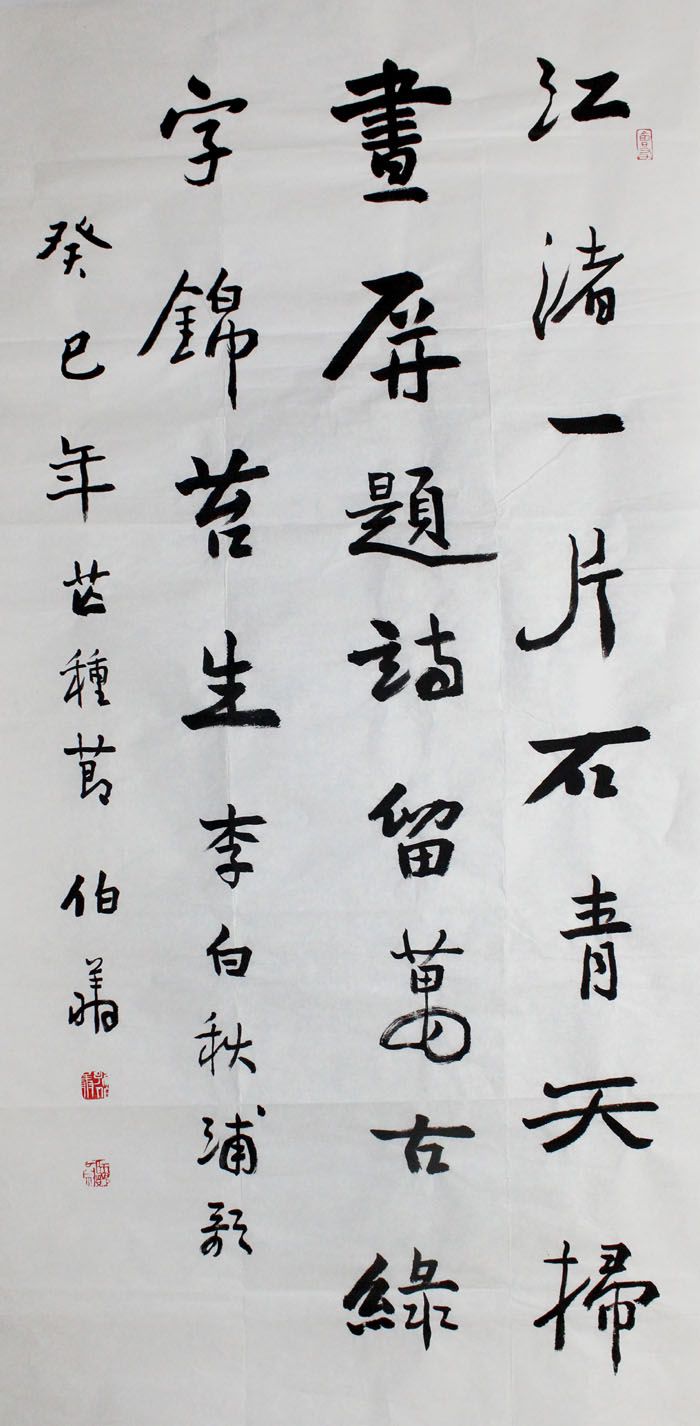 江渚一片石青天掃
畫屏題詩留萬古綠
字錦苔生李白秋浦歌
癸巳年芒種節伯